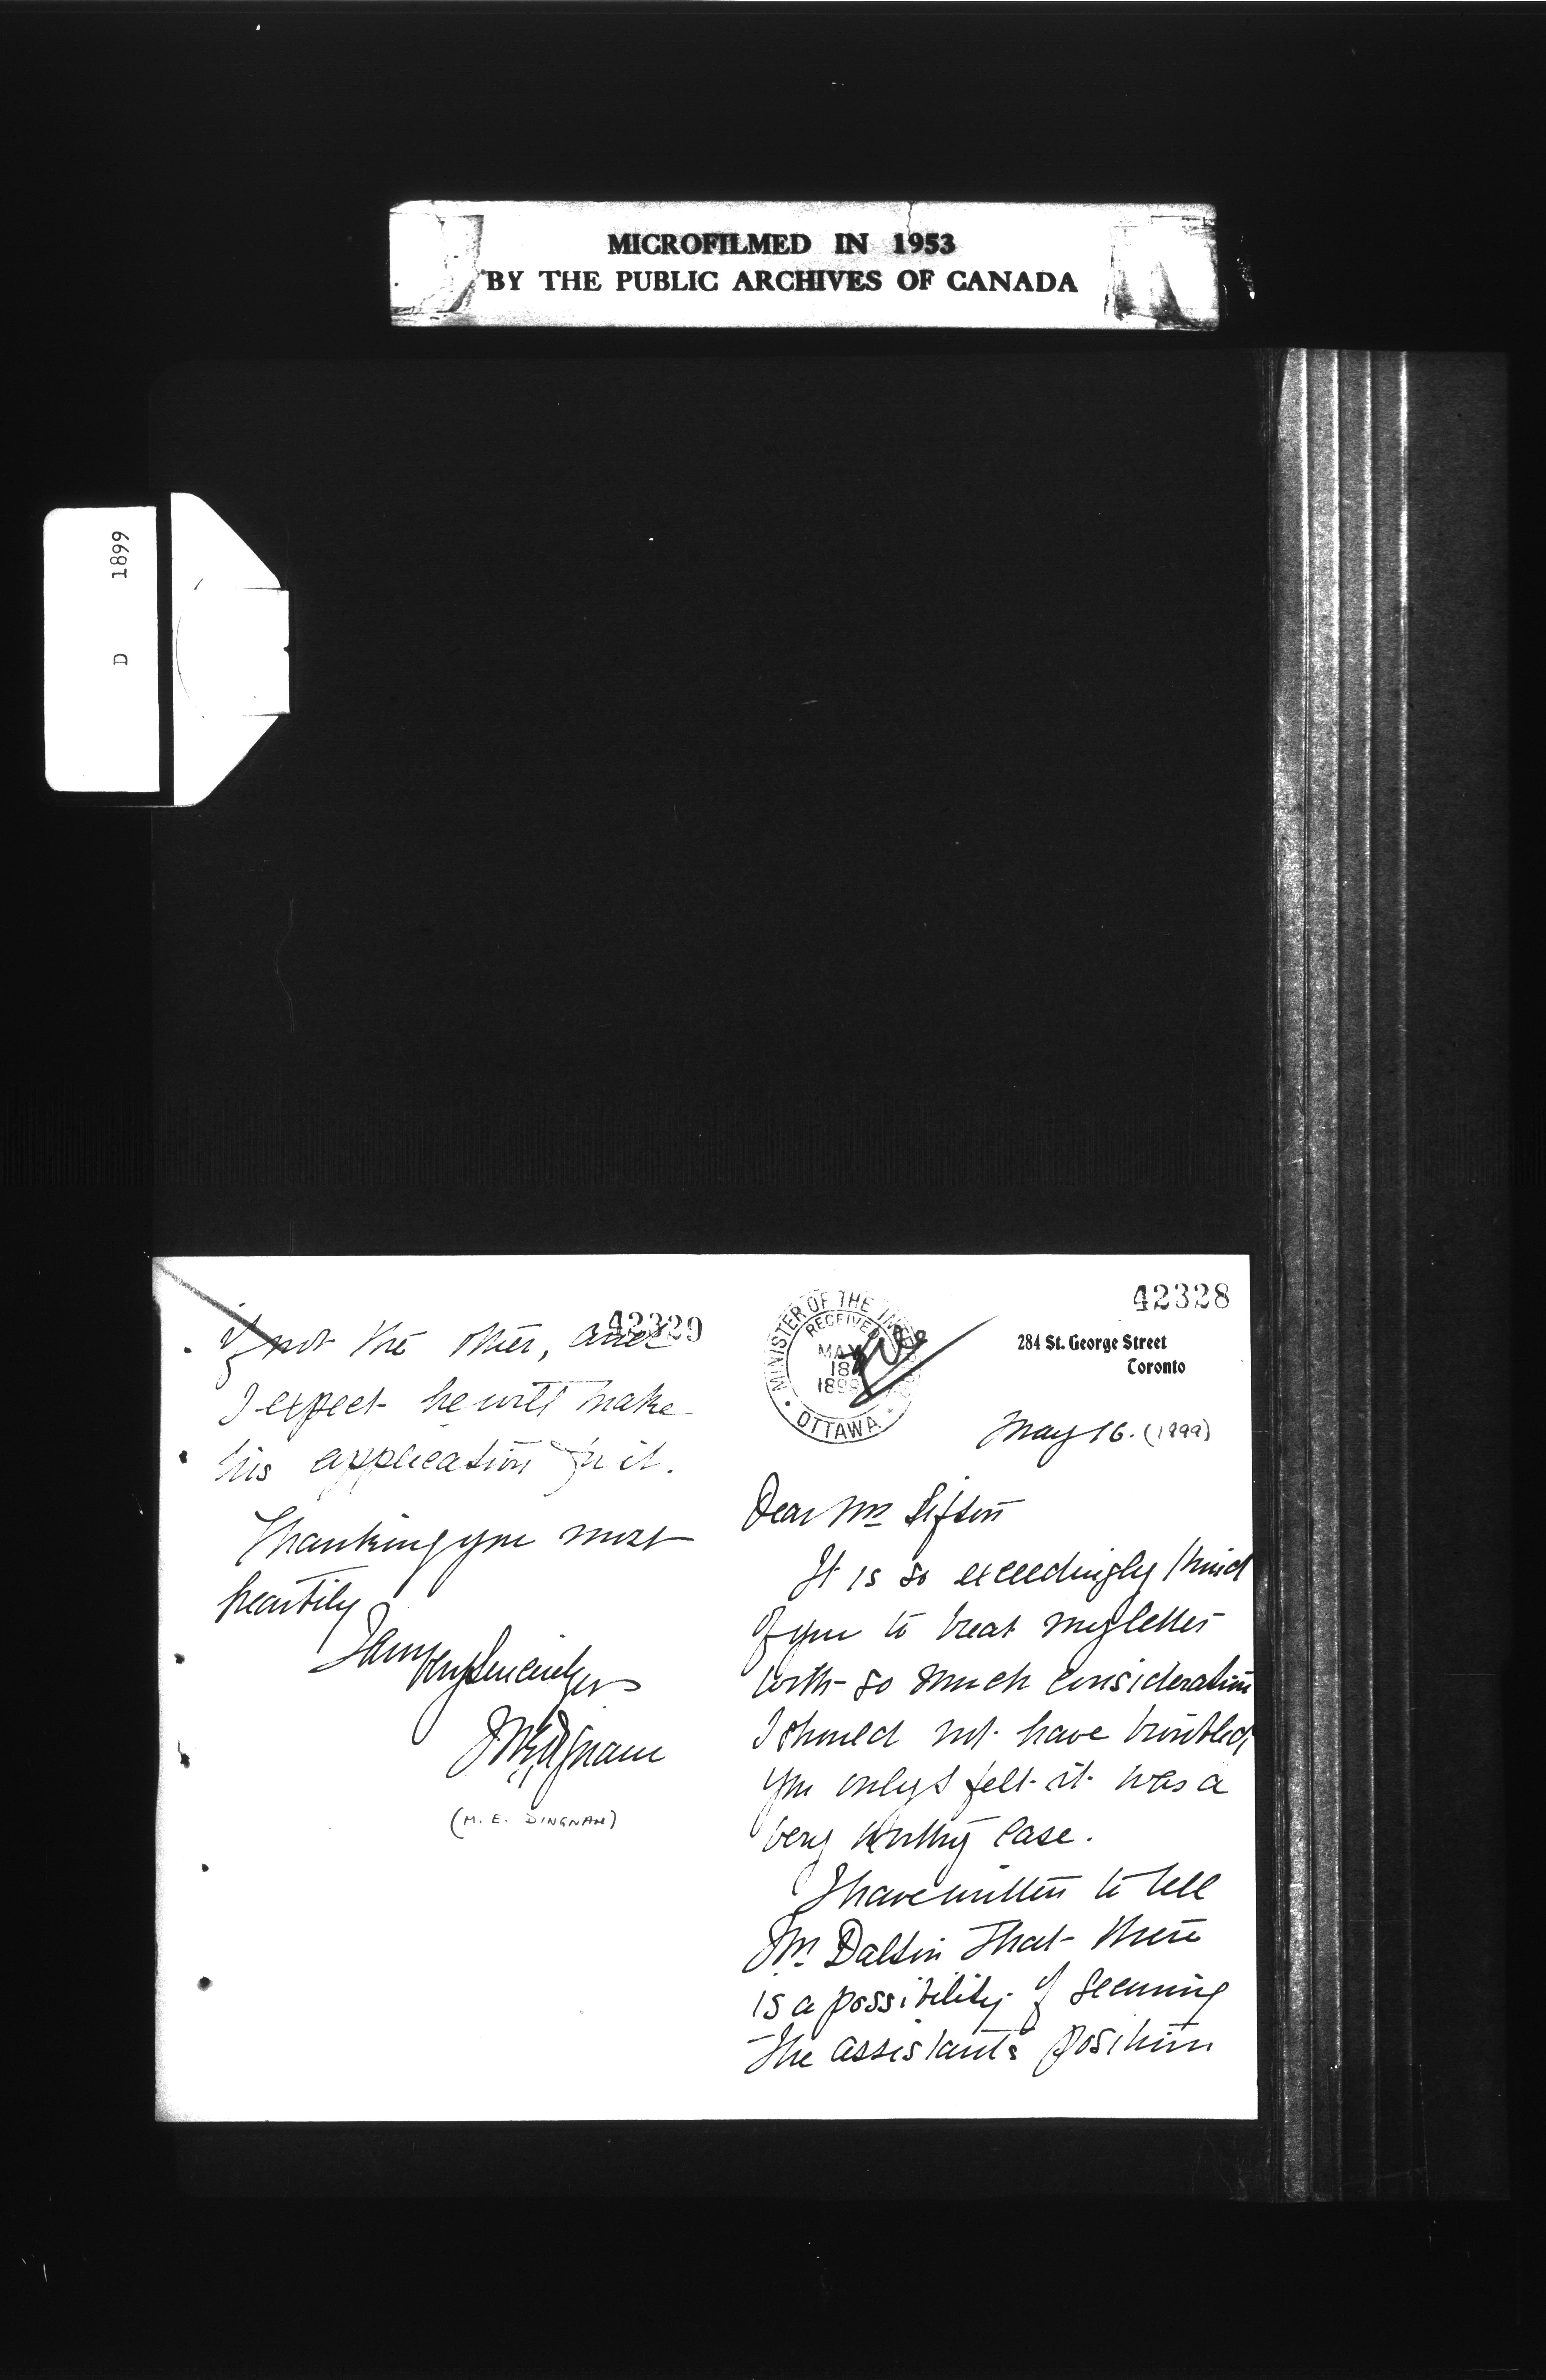 MICROFILMED IN 1953
BY THE PUBLIC ARCHIVES OF CANADA
D 1899
42328
MINISTER OF THE INTERIOR
RECEIVED
MAY
18
1899
OTTAWA
284 St. George Street
Toronto
May 16. (1899)
Dear Mr Sifton
It is so exceedingly kind
of you to treat my letter
with so much consideration
I should not have troubled
you only I felt it was a
very worthy case.
I have written to tell
Mr. Dalton that there
is a possibility of securing
the assistants position
42329
if not the other, and
I expect he will make
his application for it.
Thanking you most
heartily
I am very Sincerely yrs
M E Dignam
(M. E. DINGNAM)